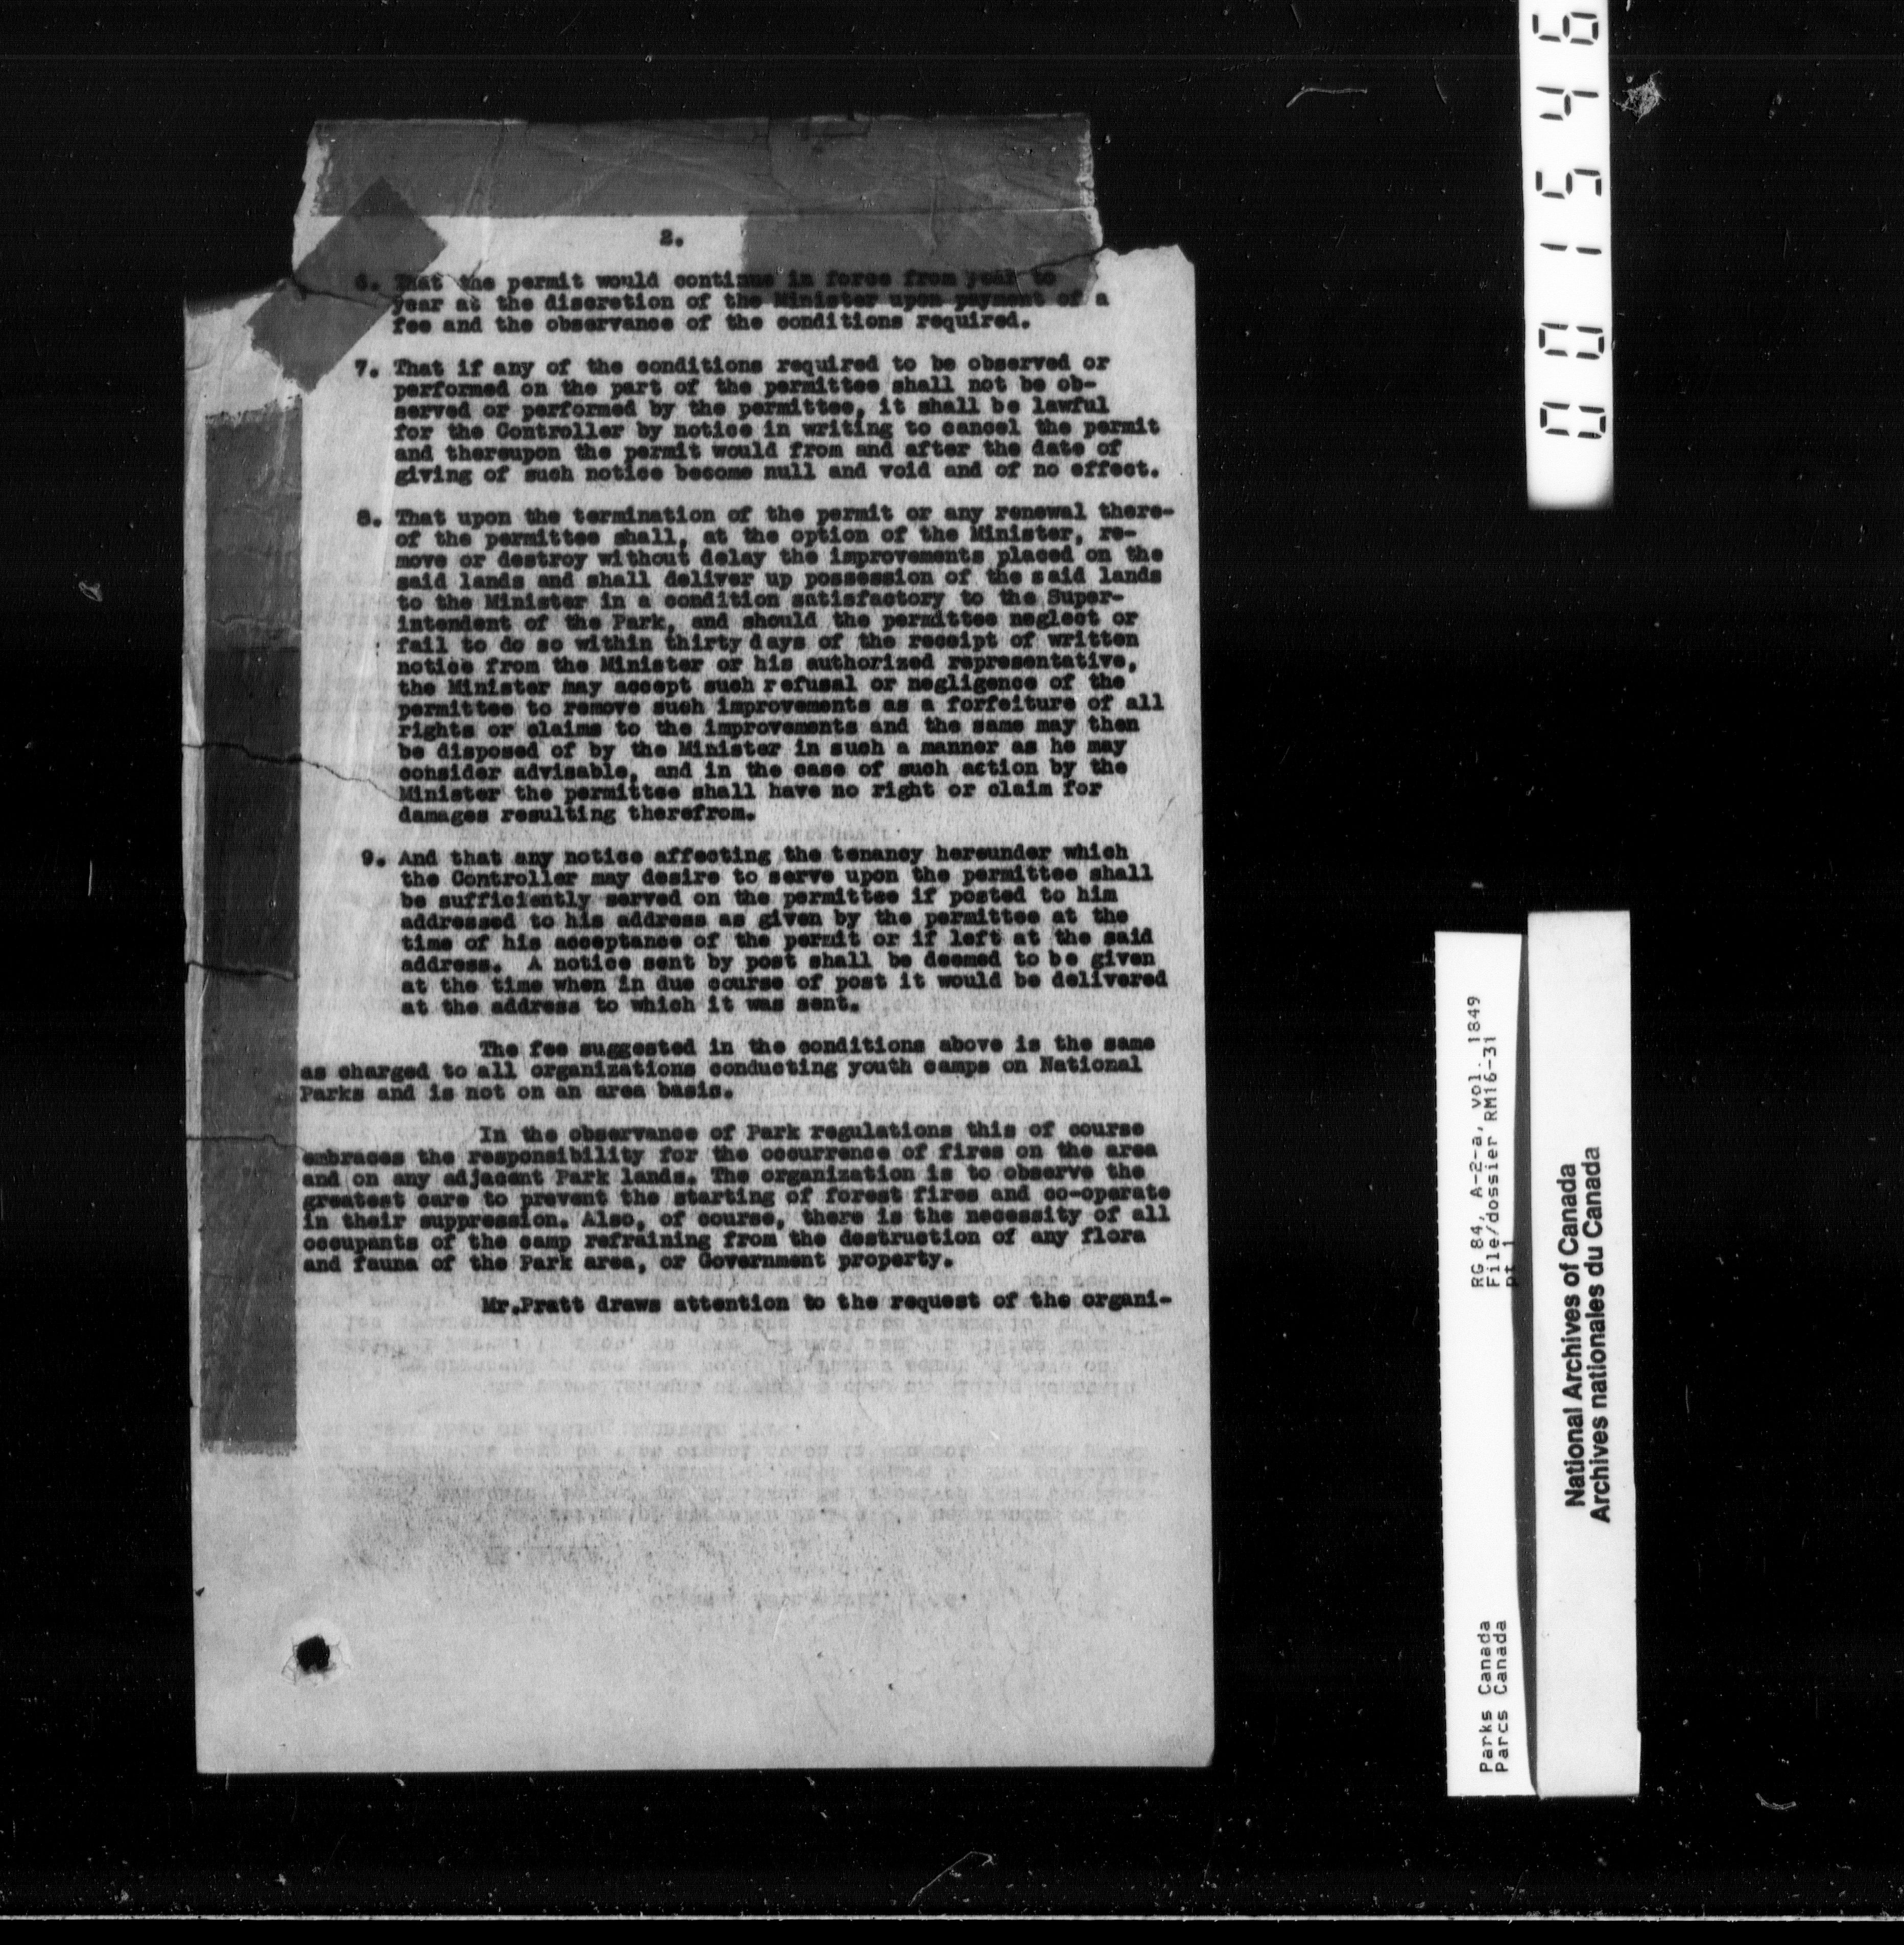 2.
6. That the permit would continue in force from year to
year at the discretion of the Minister upon payment of a
fee and the observance of the conditions required.
7. That if any of the conditions required to be observed or
performed on the part of the permittee shall not be ob-
served or performed by the permittee, it shall be lawful
for the Controller by notice in writing to cancel the permit
and thereupon the permit would from and after the date of
giving of such notice become null and void and of no effect.
8. That upon the termination of the permit or any renewal there-
of the permittee shall, at the option of the Minister, re-
move or destroy without delay the improvements placed on the
said lands and shall deliver up possession of the said lands
to the Minister in a condition satisfactory to the Super-
intendent of the Park, and should the permittee neglect or
fail to do so within thirty days of the receipt of written
notice from the Minister or his authorized representative,
the Minister may accept such refusal or negligence of the
permittee to remove such improvements as a forfeiture of all
rights or claims to the improvements and the same may then
be disposed of by the Minister in such a manner as he may
consider advisable, and in the case of such action by the
Minister the permittee shall have no right or claim for
damages resulting therefrom.
9. And that any notice affecting the tenancy hereunder which
the Controller may desire to serve upon the permittee shall
be sufficiently served on the permittee if posted to him
addressed to his address as given by the permittee at the
time of his acceptance of the permit or if left at the said
address. A notice sent by post shall be deemed to be given
at the time when in due course of post it would be delivered
at the address to which it was sent.
The fee suggested in the conditions above is the same
as charged to all organizations conducting youth camps on National
Parks and is not on an area basis.
In the observance of Park regulations this of course
embraces the responsibility for the occurrence of fires on the area
and on any adjacent Park lands. The organization is to observe the
greatest care to prevent the starting of forest fires and co-operate
in their suppression. Also, of course, there is the necessity of all
occupants of the camp refraining from the destruction of any flora
and fauna of the Park area, or Government property.
Mr.Pratt draws attention to the request of the organi-
001546
RG 84, A-2-a, vol. 1849
File/dossier RM16-31
pt 1
Parks Canada
Parcs Canada
National Archives of Canada
Archives nationales du Canada